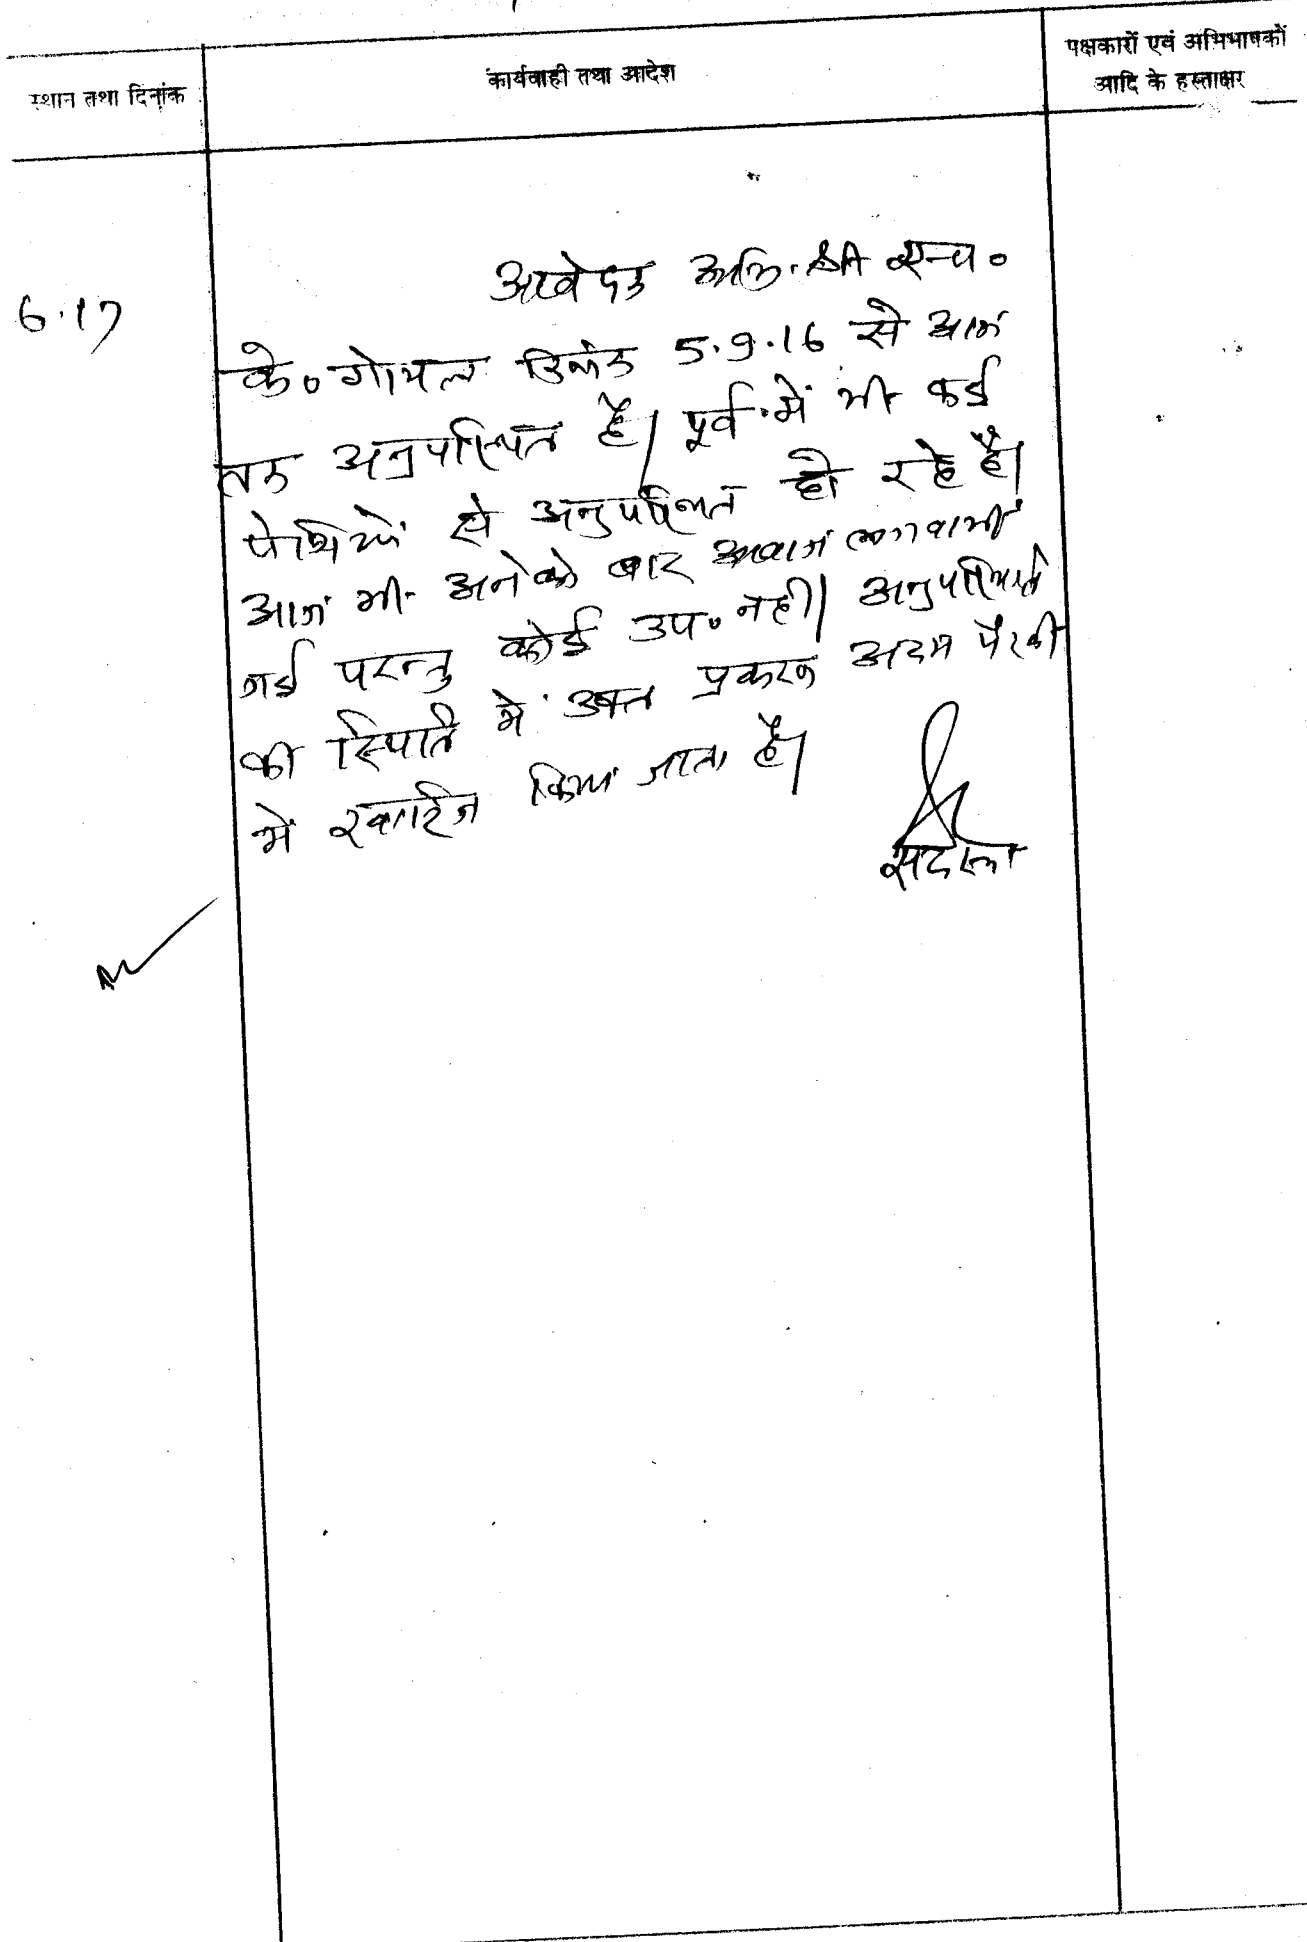 पक्षकारों एवं अभिभाषकों
स्थान तथा दिनांक कार्यवाही तथा आदेश आदि के हस्ताक्षर
6.17 आवेदक अभि. श्री एच॰
के॰ गोयल दिनांक 5.9.16 से आज
तक अनुपस्थित है। पूर्व में भी कई
पेशियों से अनुपस्थित हो रहे है।
आज भी अनेको बार आवाज लगवायी
गई परन्तु कोई उप॰ नही। अनुपस्थिति
की स्थिति में उक्त प्रकरण अदम पैरवी
में खारिज किया जाता है।
सदस्य